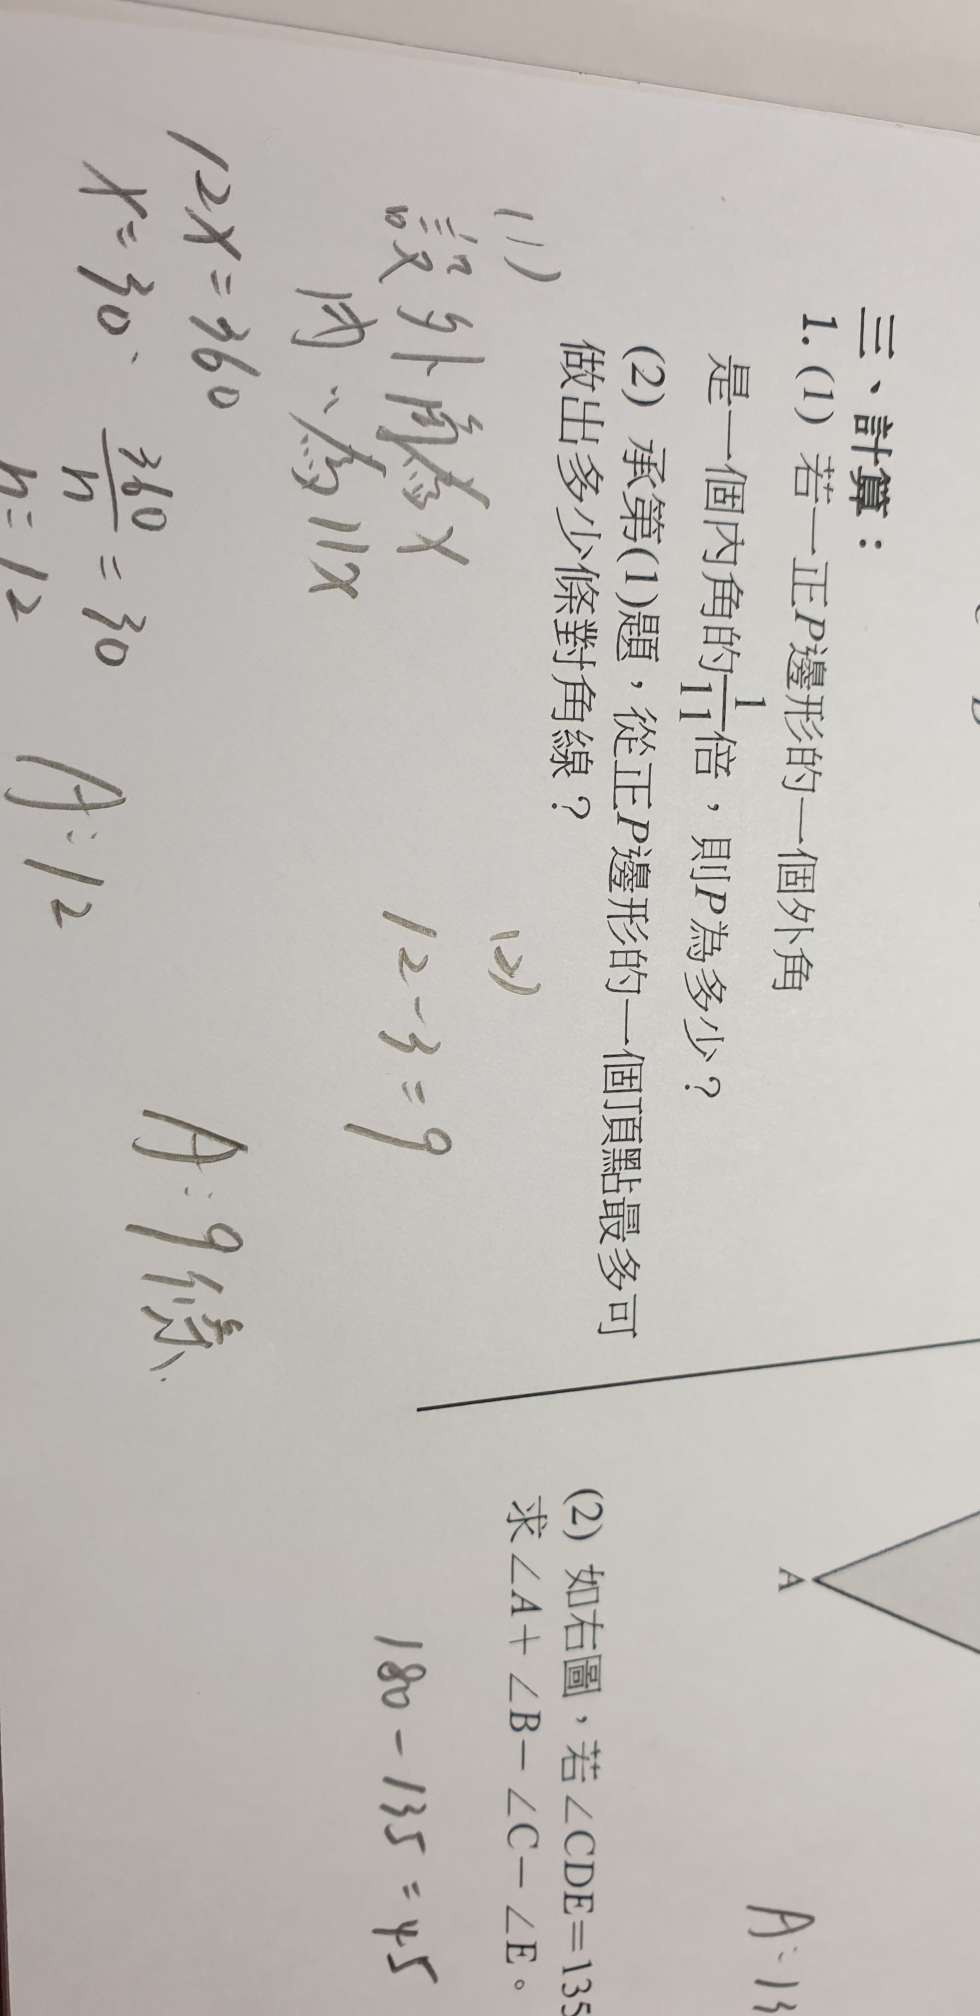 三、計算：
1. (1) 若一正P邊形的一個外角
是一個內角的1/11倍，則P為多少？
(2) 承第(1)題，從正P邊形的一個頂點最多可
做出多少條對角線？
(1)
設外角為x
內〃為11x
12x=360
x=30
360/n=30
n=12
A:12
(2)
12-3=9
A:9條
A
A:13
(2) 如右圖，若∠CDE=135
求∠A+∠B-∠C-∠E。
180-135=45